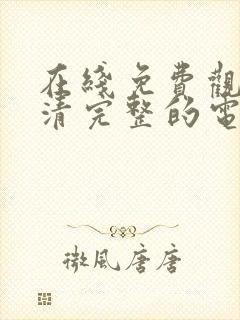 在綫免費觀
清完整的電
微風唐唐